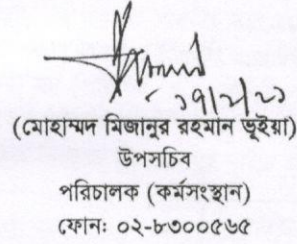 (মোহাম্মদ মিজানুর রহমান ভূইয়া)
উপসচিব
পরিচালক (কর্মসংস্থান)
ফোনঃ ০২-৮৩০০৫৬৫